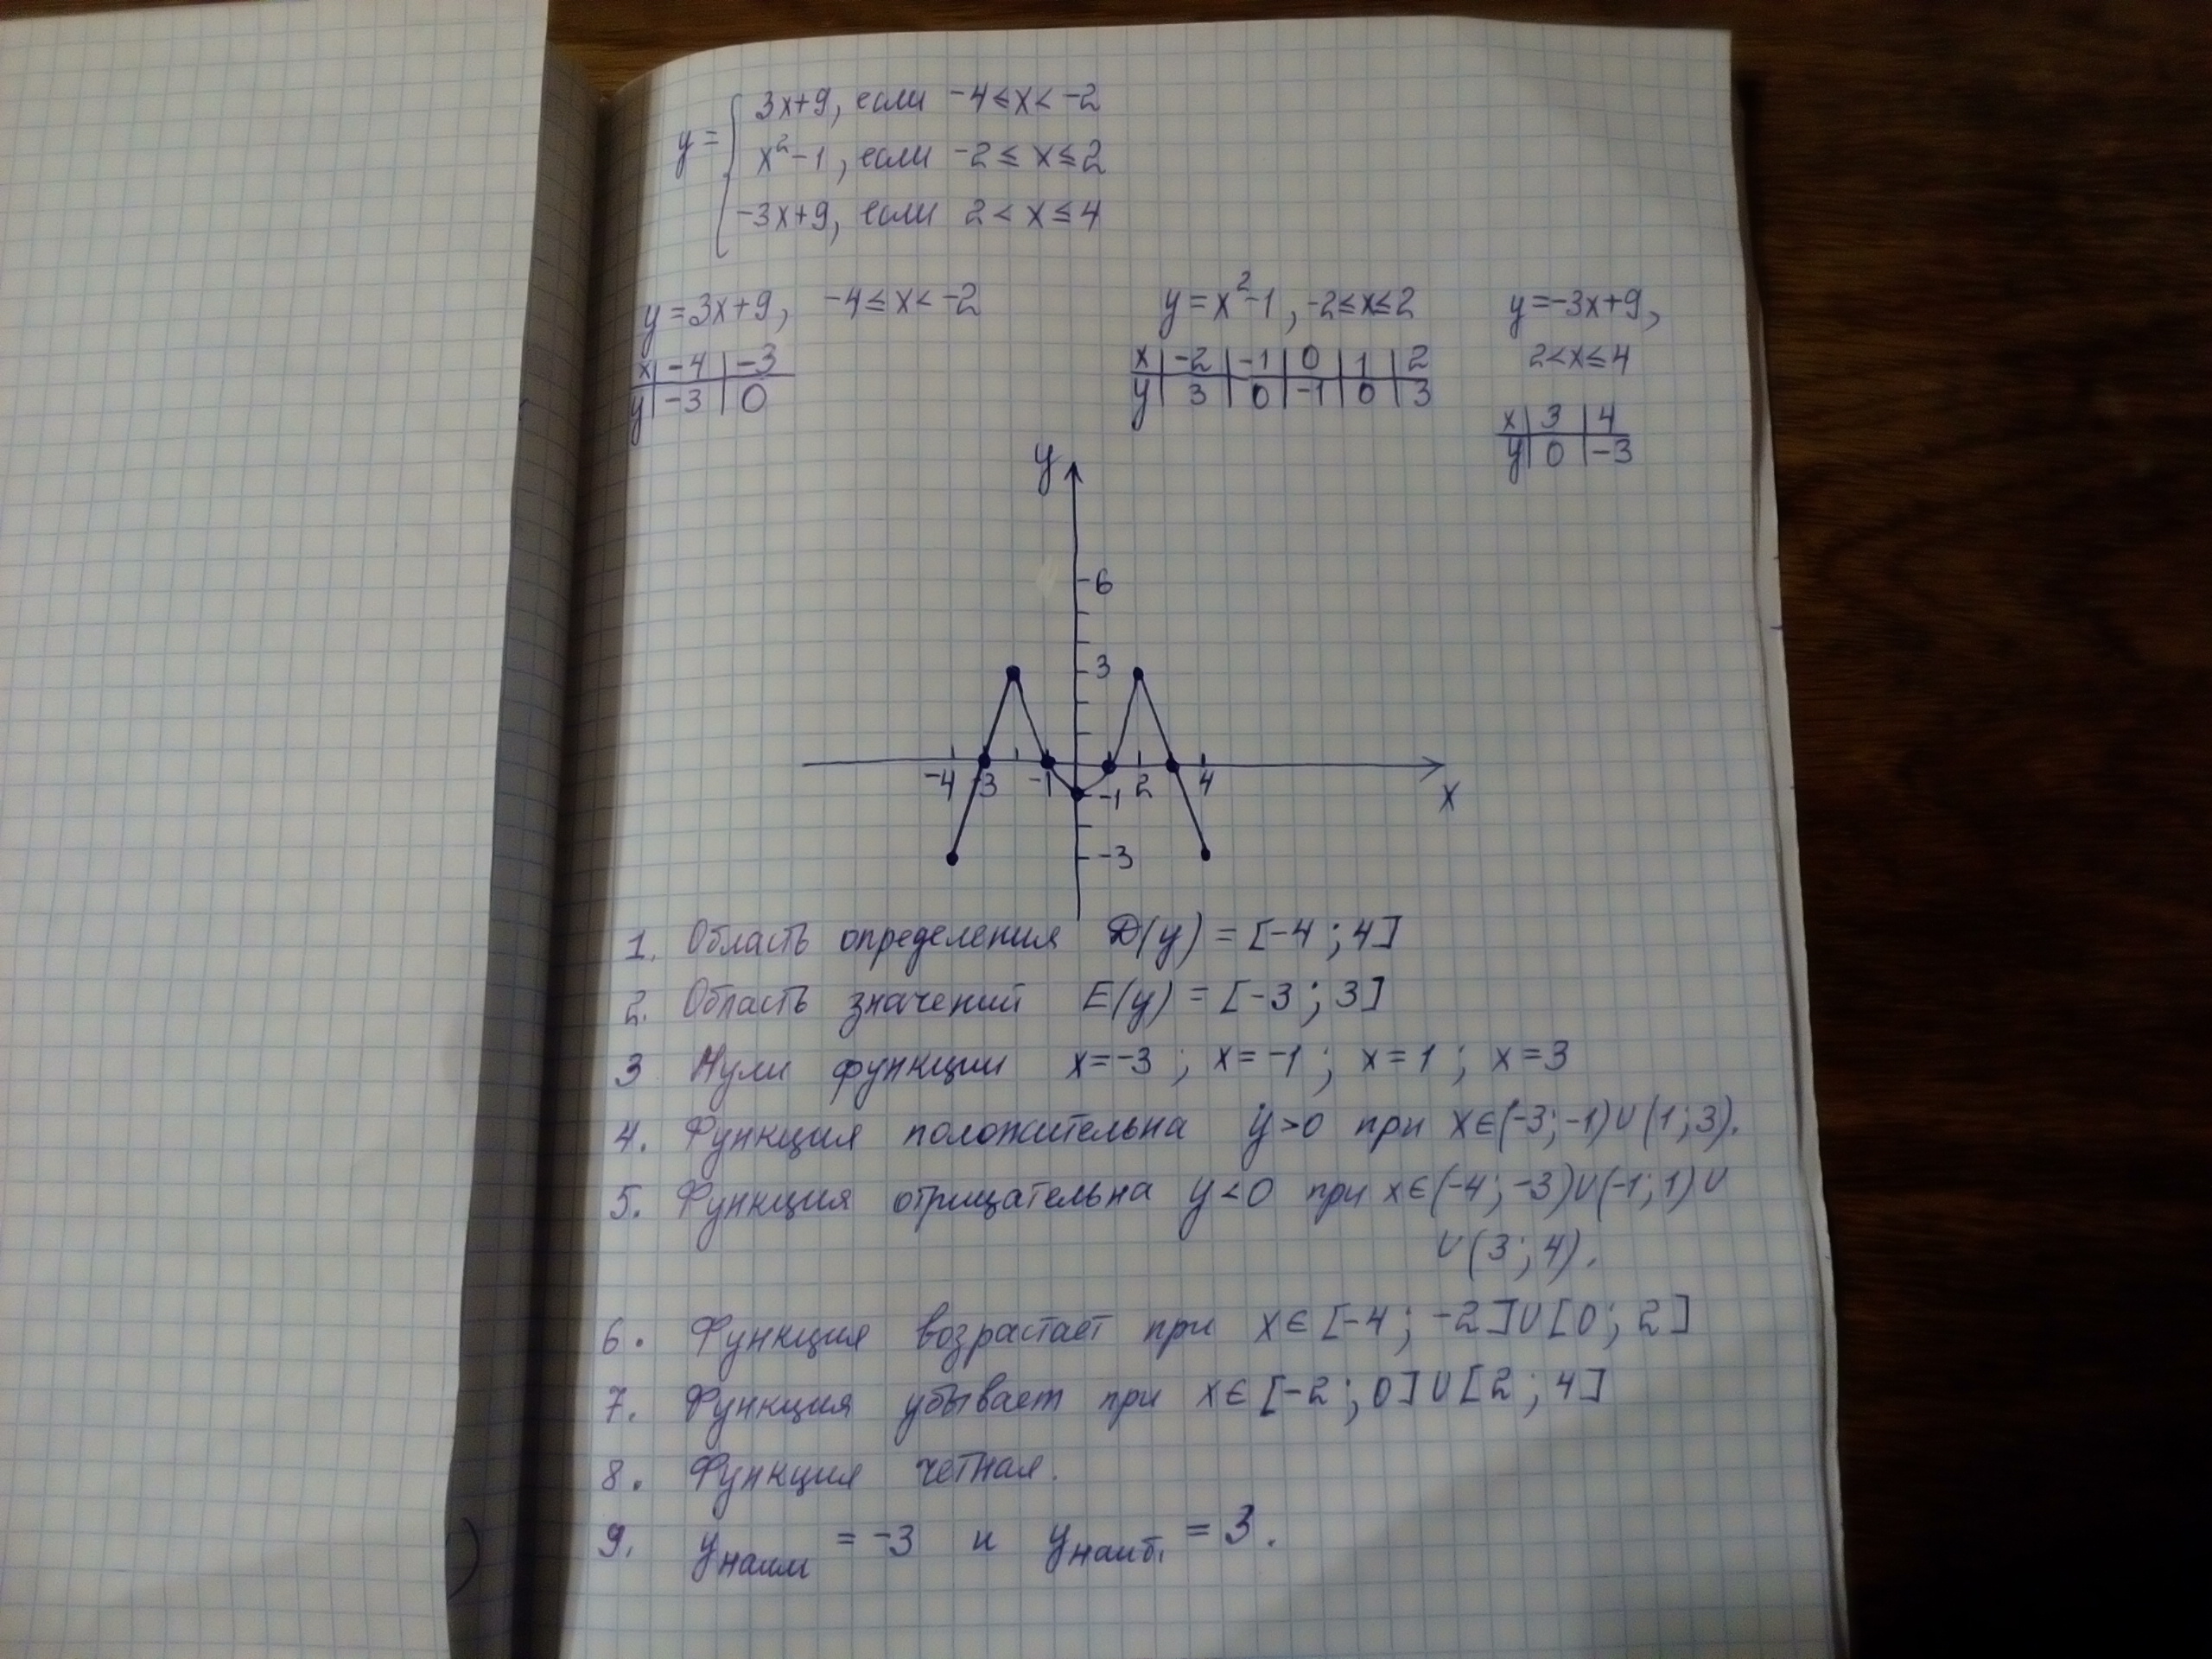 y = { 3x+9, если -4≤x< -2
x²-1, если -2 ≤ x ≤ 2
-3x+9, если 2 < x ≤ 4
y=3x+9, -4≤x< -2
x | -4 | -3
y | -3 | 0
y=x²-1, -2≤x≤2
x | -2 | -1 | 0 | 1 | 2
y | 3 | 0 | -1 | 0 | 3
y=-3x+9,
2<x≤4
x | 3 | 4
y | 0 | -3
y
6
3
-4 -3 -1 -1 2 4
x
-3
1. Область определения D(y) = [-4; 4]
2. Область значений E(y) = [-3; 3]
3 Нули функции x=-3; x=-1; x=1; x=3
4. Функция положительна y>0 при x∈(-3;-1)∪(1;3).
5. Функция отрицательна y<0 при x∈(-4;-3)∪(-1;1)∪
∪(3;4).
6. Функция возрастает при x∈[-4; -2]∪[0; 2]
7. Функция убывает при x∈[-2; 0]∪[2; 4]
8. Функция четная.
9. yнаим = -3 и yнаиб. = 3.